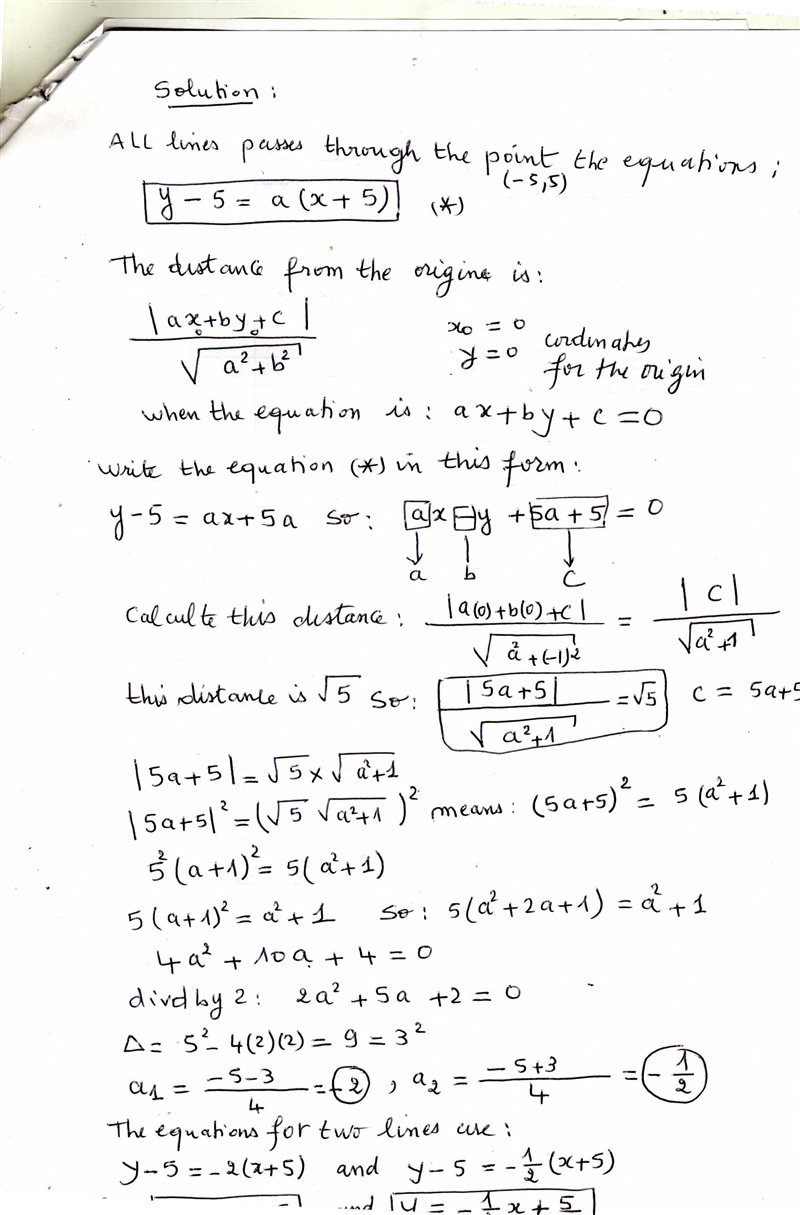 Solution :
ALL lines passes through the point (-5,5) the equations ;
y - 5 = a (x + 5) (*)
The distance from the origine is :
|ax₀+by₀+c| / √(a²+b²)
x₀ = 0
y = 0 cordinates
for the origin
when the equation is : ax+by+c=0
write the equation (*) in this form :
y-5 = ax+5a so : ax - y + 5a + 5 = 0
a b c
Calculte this distance : |a(0)+b(0)+c| / √(a²+(-1)²) = |c| / √(a²+1)
this distance is √5 so : |5a+5| / √(a²+1) = √5 c = 5a+5
|5a+5| = √5 × √(a²+1)
|5a+5|² = (√5 √(a²+1))² means : (5a+5)² = 5(a²+1)
5²(a+1)² = 5(a²+1)
5(a+1)² = a²+1 so : 5(a²+2a+1) = a²+1
4a² + 10a + 4 = 0
divd by 2 : 2a² + 5a + 2 = 0
Δ = 5² - 4(2)(2) = 9 = 3²
a₁ = (-5-3)/4 = -2 , a₂ = (-5+3)/4 = -1/2
The equations for two lines are :
y-5 = -2(x+5) and y-5 = -1/2 (x+5)
and y = -1/2 x + 5